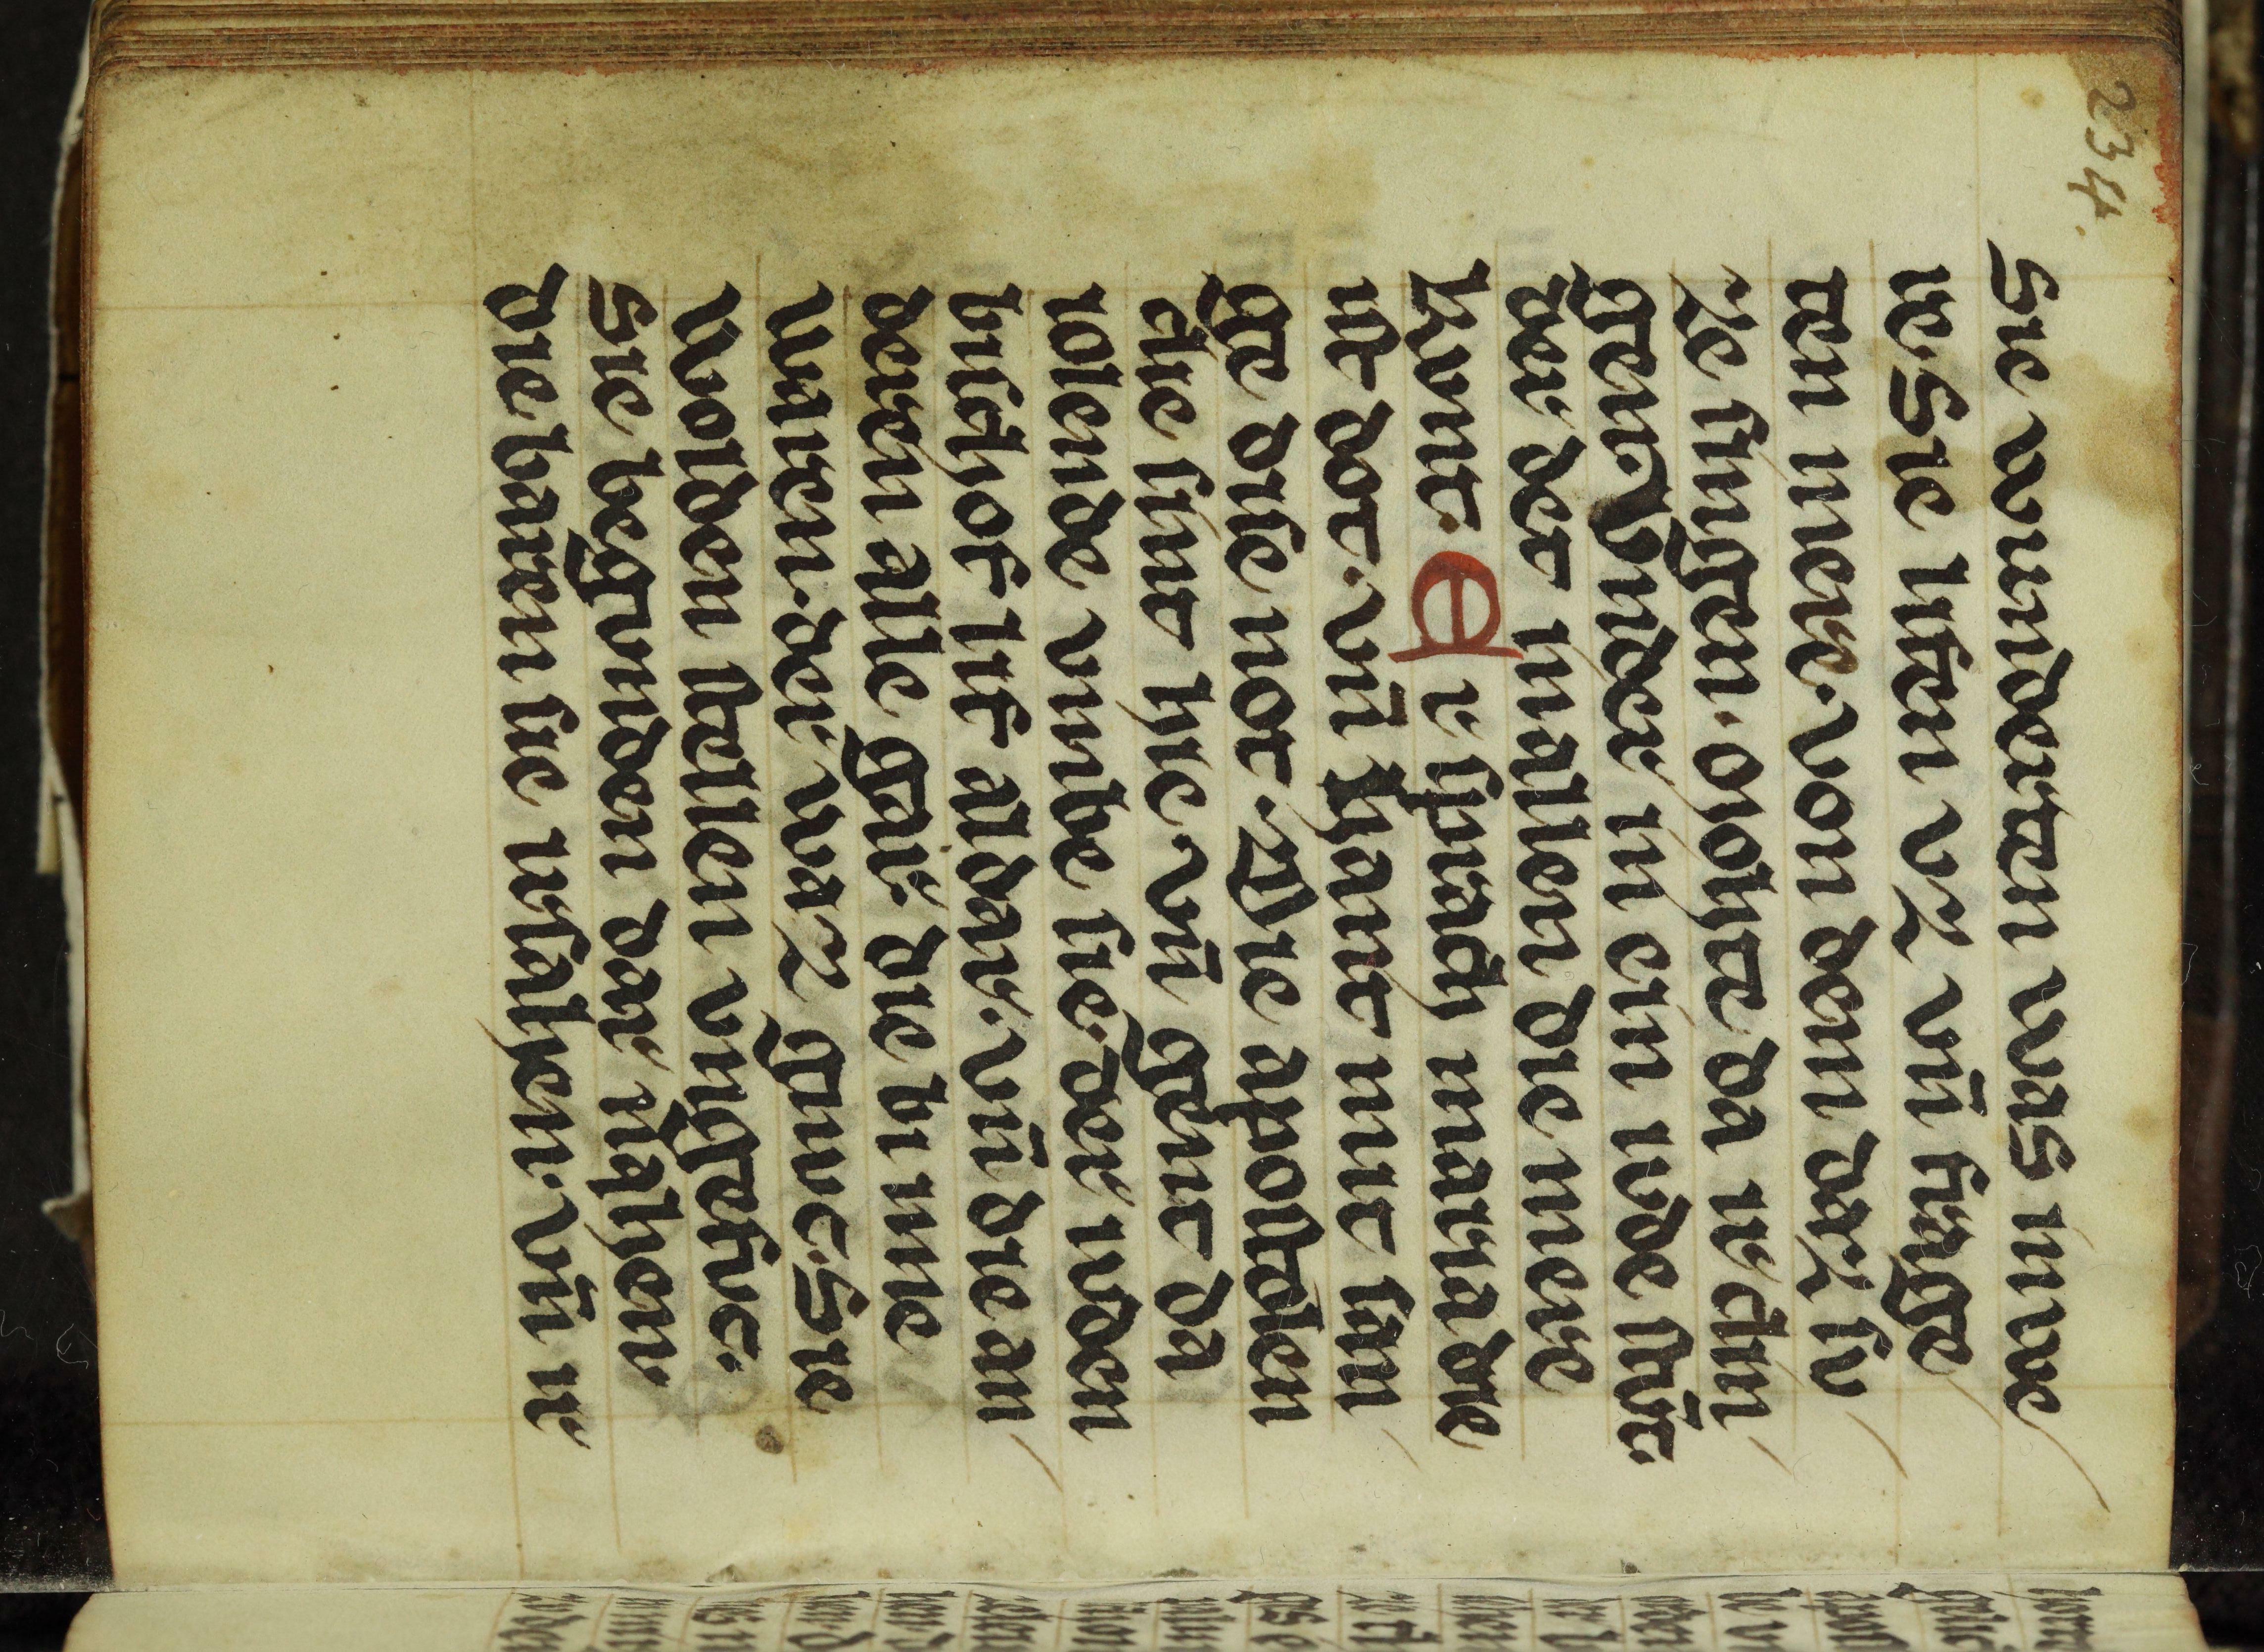 234.
Sie wunderten was in we
re. Sie lifen vz vn̄ frage
ten mere. von dem daz sv
ze singen. da irchun
gten. Vnder in ein ivde stvt.
der det in allen die mere
kvnt. Er sprach maria die
ist dot. vn̄ hant mit san
ge dise not. Die aposteln
die sint hie. vn̄ gent da
iolende vmbe sie. der ivdem
bischof lif aldar. vn̄ die am
deren alle gar. die bi ime
waren. der waz gnvc. Sie
wolden stellen vngefvc.
Sie begvnden dar nahen.
die baren sie irsahen. vn̄ ir